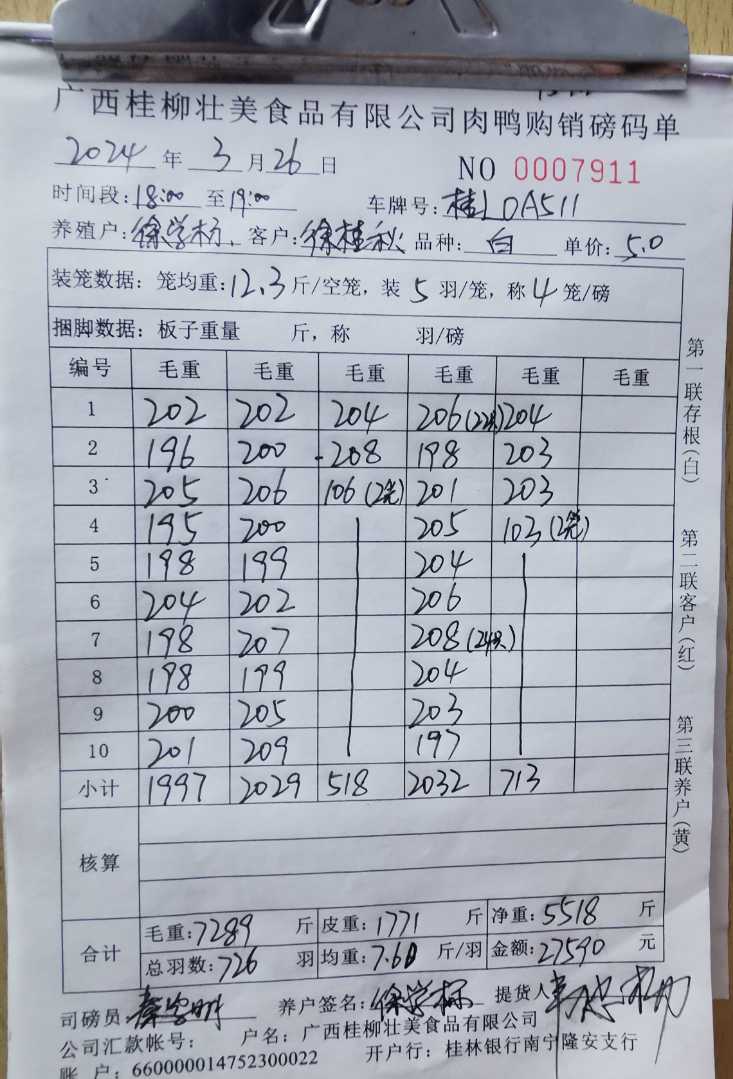 广西桂柳壮美食品有限公司肉鸭购销磅码单
2024 年 3 月 26 日 NO 0007911
时间段: 18:00 至 19:00 车牌号: 桂LDA511
养殖户: 徐学标 客户: 徐桂秋 品种: 白 单价: 5.0
装笼数据: 笼均重: 12.3 斤/空笼, 装 5 羽/笼, 称 4 笼/磅
捆脚数据: 板子重量 斤, 称 羽/磅
编号 毛重 毛重 毛重 毛重 毛重 毛重
1 202 202 204 206(22只) 204
2 196 200 208 198 203
3 205 206 106(2笼) 201 203
4 195 200 205 103(2笼)
5 198 199 204
6 204 202 206
7 198 207 208(24只)
8 198 199 204
9 200 205 203
10 201 209 197
小计 1997 2029 518 2032 713
核算
合计 毛重: 7289 斤 皮重: 1771 斤 净重: 5518 斤
总羽数: 726 羽 均重: 7.60 斤/羽 金额: 27590 元
司磅员 养户签名: 徐学标 提货人
公司汇款帐号: 户名: 广西桂柳壮美食品有限公司
账 户: 660000014752300022 开户行: 桂林银行南宁隆安支行
第一联存根(白) 第二联客户(红) 第三联养户(黄)